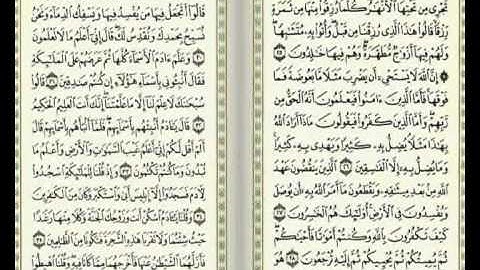 تَجْرِي مِن تَحْتِهَا الْأَنْهَٰرُ كُلَّمَا رُزِقُوا مِنْهَا مِن ثَمَرَةٍ
رِّزْقًا قَالُوا هَٰذَا الَّذِي رُزِقْنَا مِن قَبْلُ وَأُتُوا بِهِ مُتَشَٰبِهًا
وَلَهُمْ فِيهَا أَزْوَٰجٌ مُّطَهَّرَةٌ وَهُمْ فِيهَا خَٰلِدُونَ ٢٥
إِنَّ اللَّهَ لَا يَسْتَحْيِي أَن يَضْرِبَ مَثَلًا مَّا بَعُوضَةً فَمَا
فَوْقَهَا فَأَمَّا الَّذِينَ ءَامَنُوا فَيَعْلَمُونَ أَنَّهُ الْحَقُّ مِن
رَّبِّهِمْ وَأَمَّا الَّذِينَ كَفَرُوا فَيَقُولُونَ مَاذَا أَرَادَ اللَّهُ
بِهَٰذَا مَثَلًا يُضِلُّ بِهِ كَثِيرًا وَيَهْدِي بِهِ كَثِيرًا
وَمَا يُضِلُّ بِهِ إِلَّا الْفَٰسِقِينَ ٢٦ الَّذِينَ يَنقُضُونَ عَهْدَ
اللَّهِ مِنۢ بَعْدِ مِيثَٰقِهِ وَيَقْطَعُونَ مَا أَمَرَ اللَّهُ بِهِ أَن يُوصَلَ
وَيُفْسِدُونَ فِي الْأَرْضِ أُولَٰئِكَ هُمُ الْخَٰسِرُونَ ٢٧
كَيْفَ تَكْفُرُونَ بِاللَّهِ وَكُنتُمْ أَمْوَٰتًا فَأَحْيَٰكُمْ
ثُمَّ يُمِيتُكُمْ ثُمَّ يُحْيِيكُمْ ثُمَّ إِلَيْهِ تُرْجَعُونَ ٢٨
قَالُوا أَتَجْعَلُ فِيهَا مَن يُفْسِدُ فِيهَا وَيَسْفِكُ الدِّمَاءَ وَنَحْنُ
نُسَبِّحُ بِحَمْدِكَ وَنُقَدِّسُ لَكَ قَالَ إِنِّي أَعْلَمُ مَا لَا تَعْلَمُونَ
٣٠ وَعَلَّمَ ءَادَمَ الْأَسْمَاءَ كُلَّهَا ثُمَّ عَرَضَهُمْ عَلَى الْمَلَٰئِكَةِ
فَقَالَ أَنۢبِـُٔونِي بِأَسْمَاءِ هَٰؤُلَاءِ إِن كُنتُمْ صَٰدِقِينَ ٣١ قَالُوا
سُبْحَٰنَكَ لَا عِلْمَ لَنَا إِلَّا مَا عَلَّمْتَنَا إِنَّكَ أَنتَ الْعَلِيمُ الْحَكِيمُ
٣٢ قَالَ يَٰـَٔادَمُ أَنۢبِئْهُم بِأَسْمَائِهِمْ فَلَمَّا أَنۢبَأَهُم بِأَسْمَائِهِمْ قَالَ
أَلَمْ أَقُل لَّكُمْ إِنِّي أَعْلَمُ غَيْبَ السَّمَٰوَٰتِ وَالْأَرْضِ وَأَعْلَمُ مَا
تُبْدُونَ وَمَا كُنتُمْ تَكْتُمُونَ ٣٣ وَإِذْ قُلْنَا لِلْمَلَٰئِكَةِ اسْجُدُوا
لِـَٔادَمَ فَسَجَدُوا إِلَّا إِبْلِيسَ أَبَىٰ وَاسْتَكْبَرَ وَكَانَ مِنَ الْكَٰفِرِينَ
٣٤ وَقُلْنَا يَٰـَٔادَمُ اسْكُنْ أَنتَ وَزَوْجُكَ الْجَنَّةَ وَكُلَا مِنْهَا رَغَدًا
حَيْثُ شِئْتُمَا وَلَا تَقْرَبَا هَٰذِهِ الشَّجَرَةَ فَتَكُونَا مِنَ الظَّٰلِمِينَ ٣٥
فَأَزَلَّهُمَا الشَّيْطَٰنُ عَنْهَا فَأَخْرَجَهُمَا مِمَّا كَانَا فِيهِ وَقُلْنَا